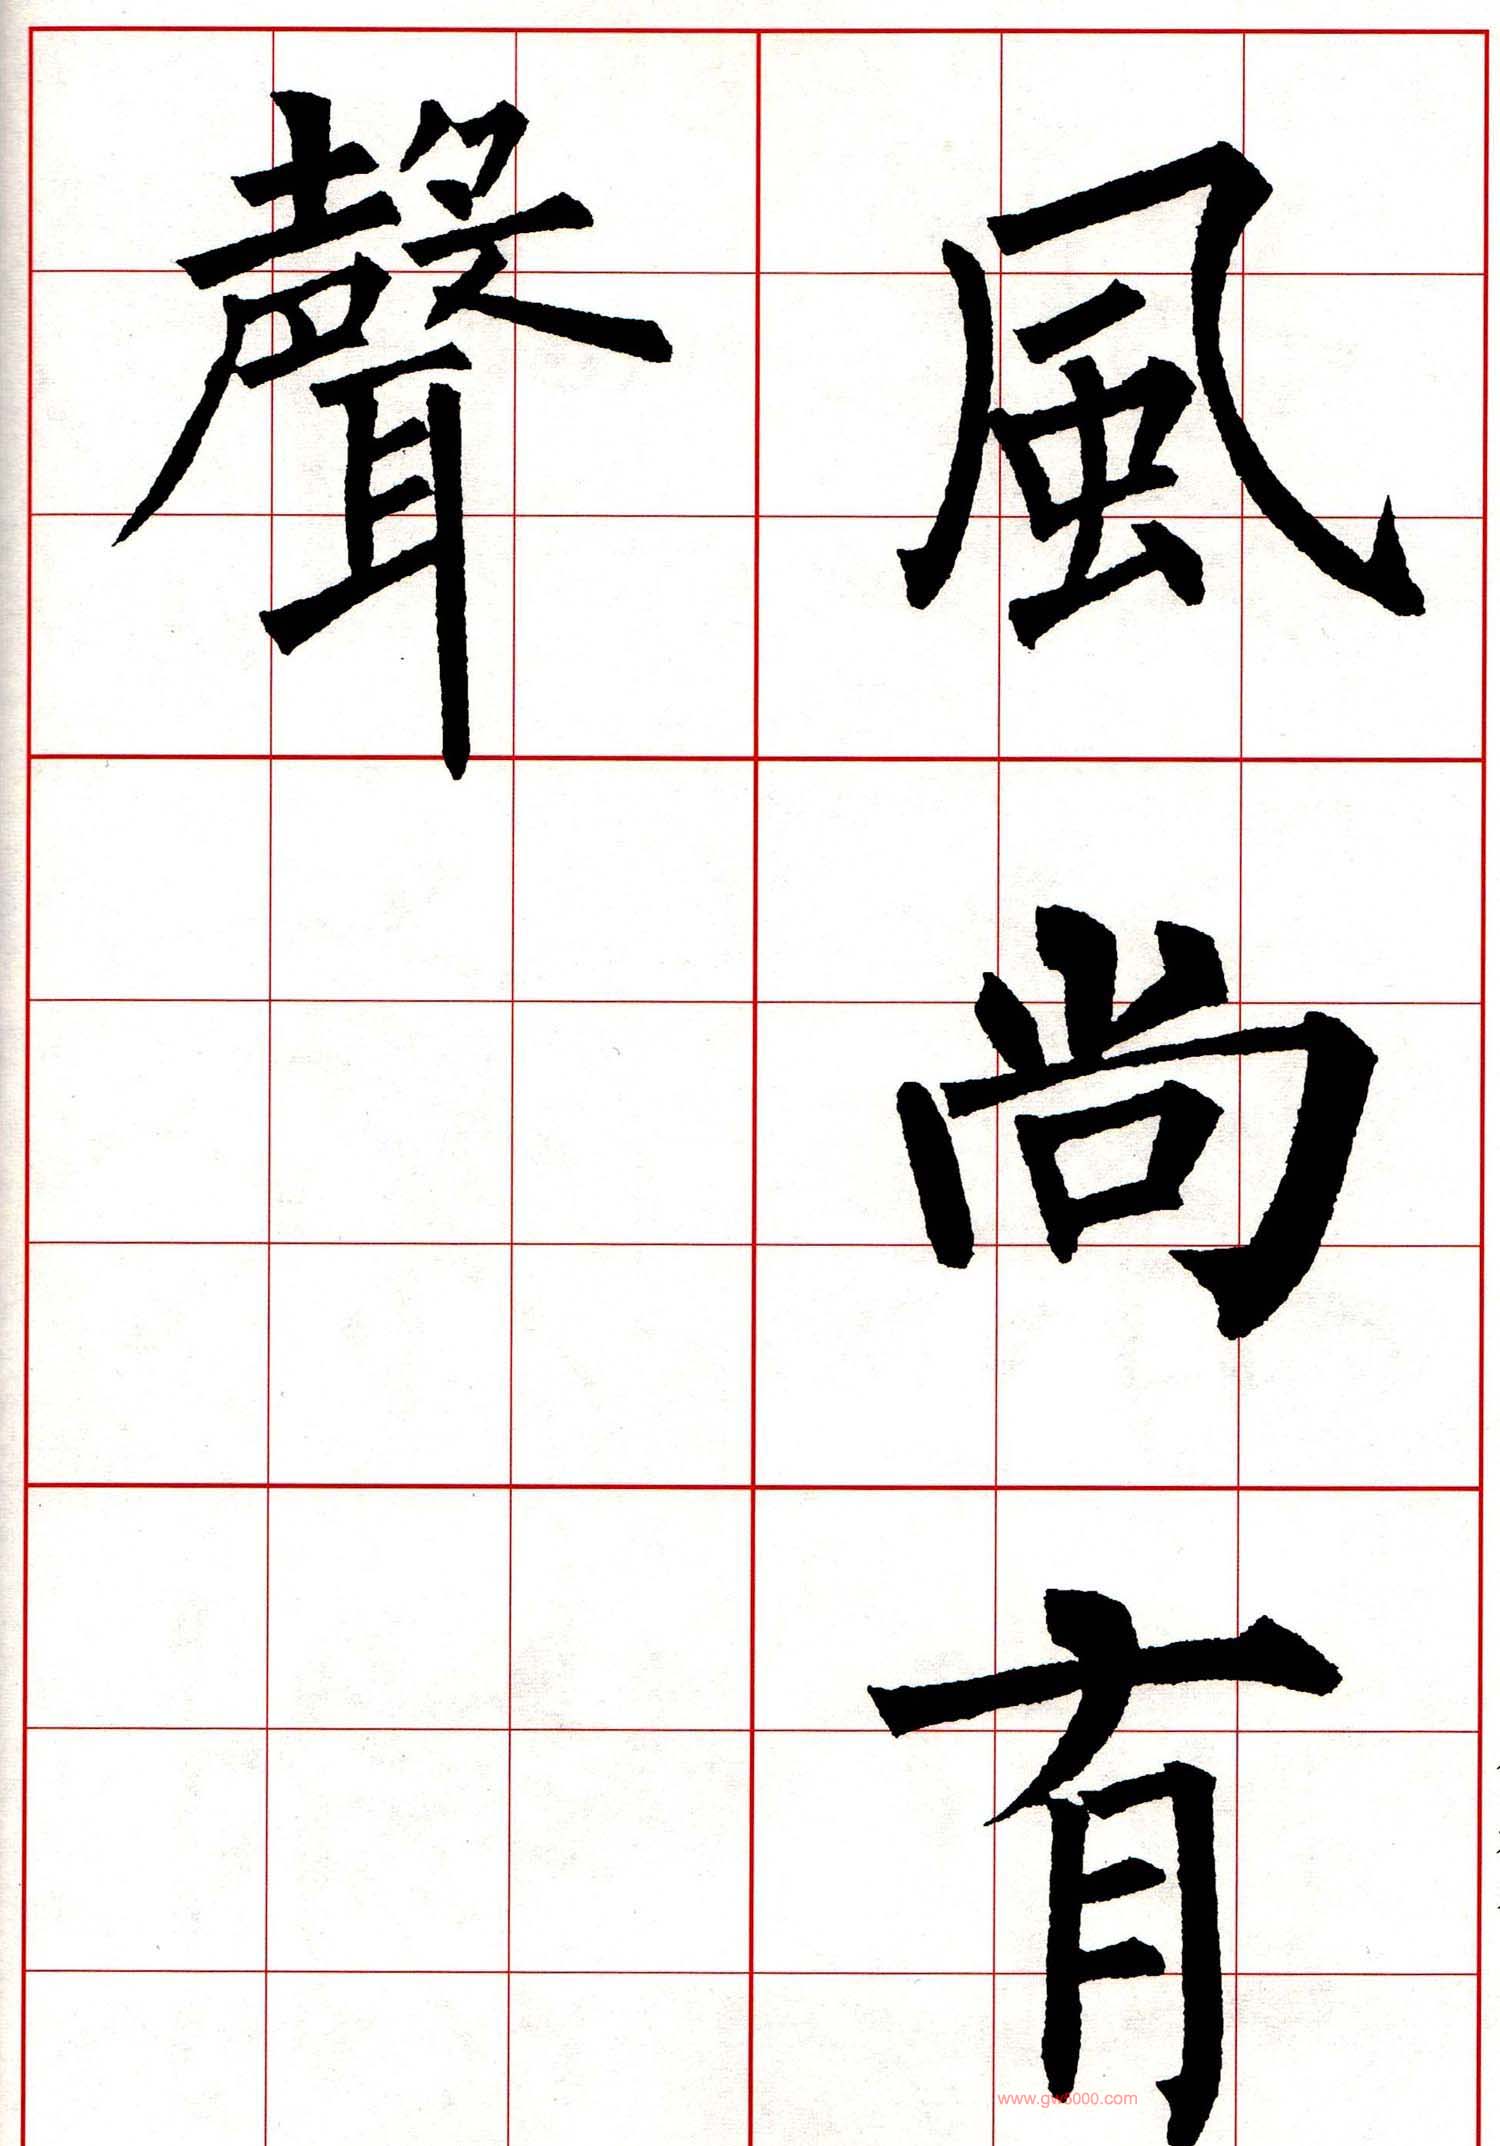 風尚有
聲
www.gw5000.com